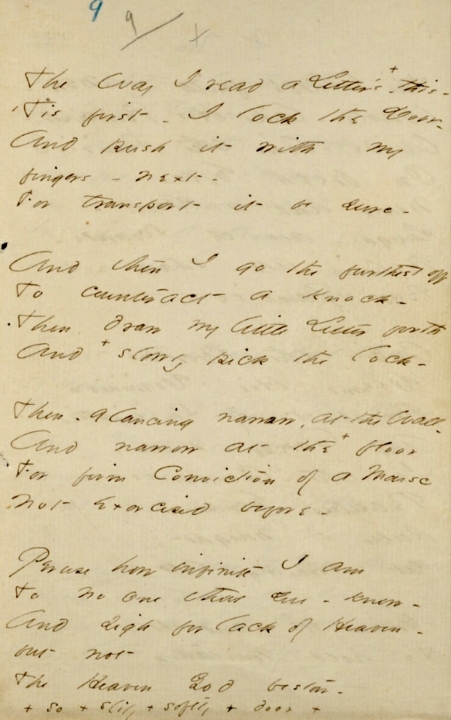 9
9 +
The Way I read a Letter's +this -
'Tis first - I lock the Door -
And push it with my
fingers - next -
For transport it be sure -
And then I go the furthest off
To counteract a knock -
Then draw my little Letter forth
And +slowly pick the lock -
Then - glancing narrow, at the Wall -
And narrow at the +floor
For firm Conviction of a Mouse
Not Exorcised before -
Peruse how infinite I am
To no one that You - know -
And sigh for lack of Heaven -
but not
The Heaven God bestow -
+ so + slily + softly + door +